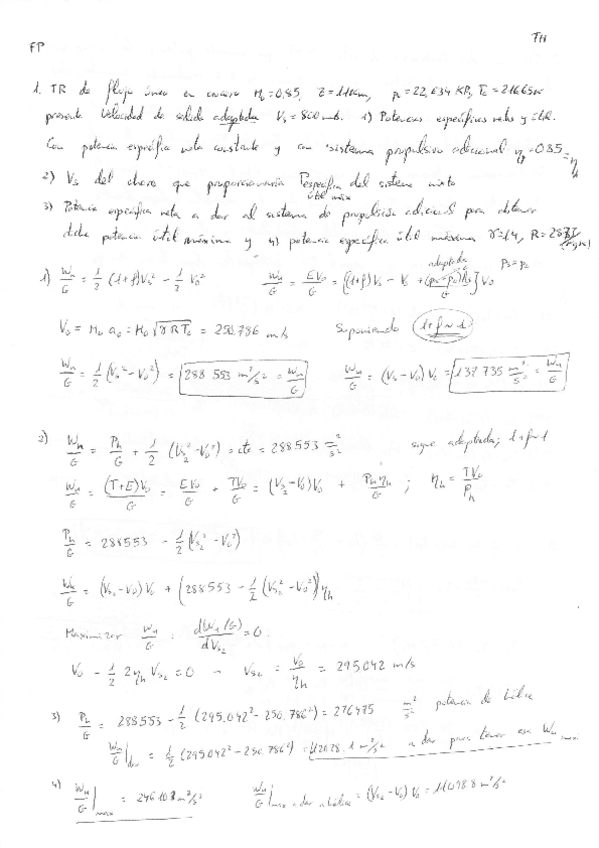 FP
1. TR de flujo único en crucero M₀=0,85, z=11km, p₀=22,634 KPa, T₀=216,65K
presenta velocidad de salida adaptada Vs=800 m/s. 1) Potencias específicas neta y útil.
Con potencia específica neta constante y con sistema propulsivo adicional η=0.85=η
2) Vs del chorro que proporcionaría Pespecífica útil máx del sistema mixto
3) Potencia específica neta a dar al sistema de propulsión adicional para obtener
dicha potencia útil máxima y 4) potencia específica útil máxima γ=1.4, R=287 J/(kgK)
adaptada Ps=P₀
1) Wn/G = 1/2 (1+f)Vs² - 1/2 V₀² Wu/G = EV₀/G = [(1+f)Vs - V₀ + (ps-p₀)As/G] V₀
V₀ = M₀ a₀ = M₀ √γRT₀ = 250,786 m/s Suponiendo 1+f≈1
Wn/G = 1/2 (Vs²-V₀²) = 288 553 m²/s² = Wn/G Wu/G = (Vs-V₀) V₀ = 137 735 m²/s² = Wu/G
2) Wn/G = Ph/G + 1/2 (Vs₂²-V₀²) = cte = 288553 m²/s² sigue adaptada; 1+f≈1
Wu/G = (T+E)V₀/G = EV₀/G + TV₀/G = (Vs₂-V₀)V₀ + Ph ηh/G ; ηh = TV₀/Ph
Ph/G = 288553 - 1/2 (Vs₂²-V₀²)
Wu/G = (Vs₂-V₀)V₀ + (288553 - 1/2 (Vs₂²-V₀²)) ηh
Maximizar Wu/G : d(Wu/G)/dVs₂ = 0
V₀ - 1/2 2ηh Vs₂ = 0 → Vs₂ = V₀/ηh = 295,042 m/s
3) Ph/G = 288553 - 1/2 (295,042² - 250,786²) = 276475 m²/s² potencia de hélice
Wn/G = 1/2 (295,042² - 250,786²) = m²/s² a dar para tener esa Wu max
4) Wu/G|max = 246103 m²/s² Wu/G|max = (Vs₂-V₀) V₀ = 11098.8 m²/s²